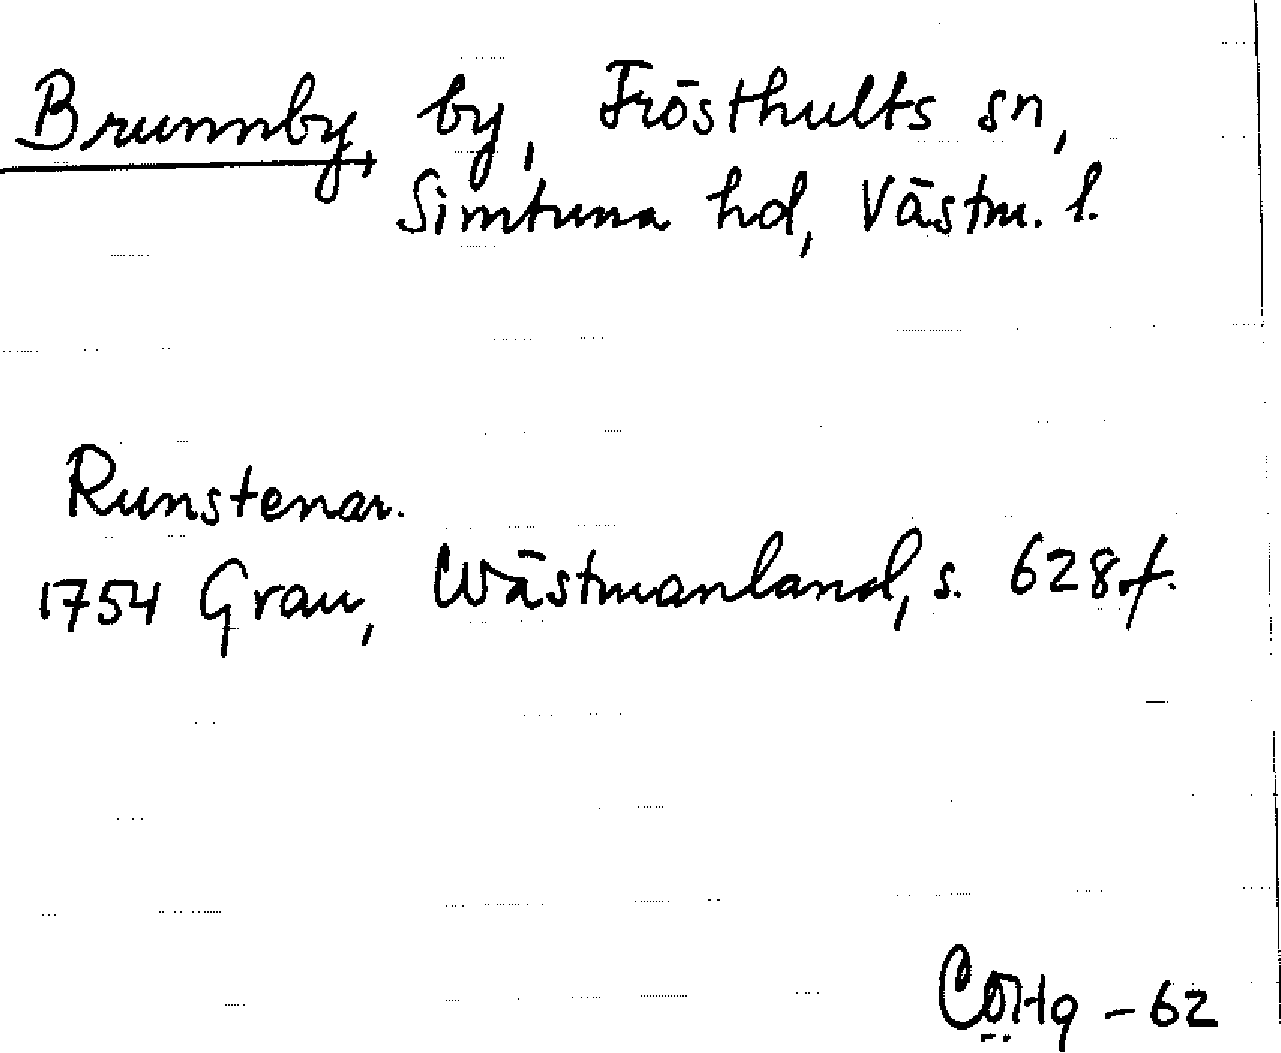 Brunnby, by, Frösthults sn,
Simtuna hd, Västm. l.
Runstenar.
1754 Grau, Wästmanland, s. 628f.
-62